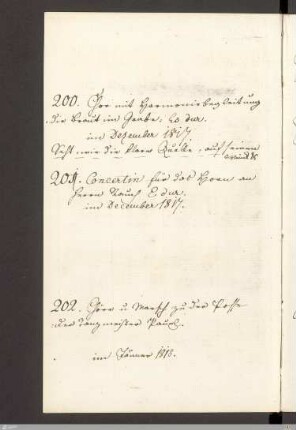 200. Chor mit Harmoniebegleitung
die Braut im Grabe, Es dur.
im Dezember 1817.
Seht, wie die klare Quelle, auf seinen
201. Concertin für das Horn an
Herrn Rauch E dur.
im December 1817.
202. Chor u. Marsch zu der Posse
der Tanzmeister Pauxl.
im Jänner 1818.